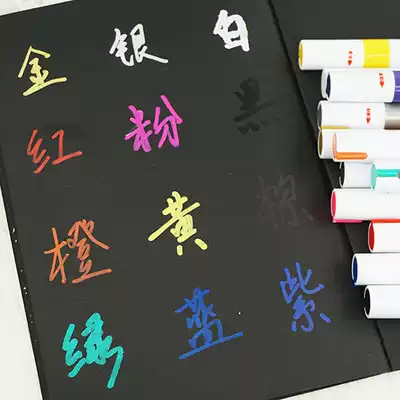 金 银 白
红 粉 黑
橙 黄 棕
绿 蓝 紫